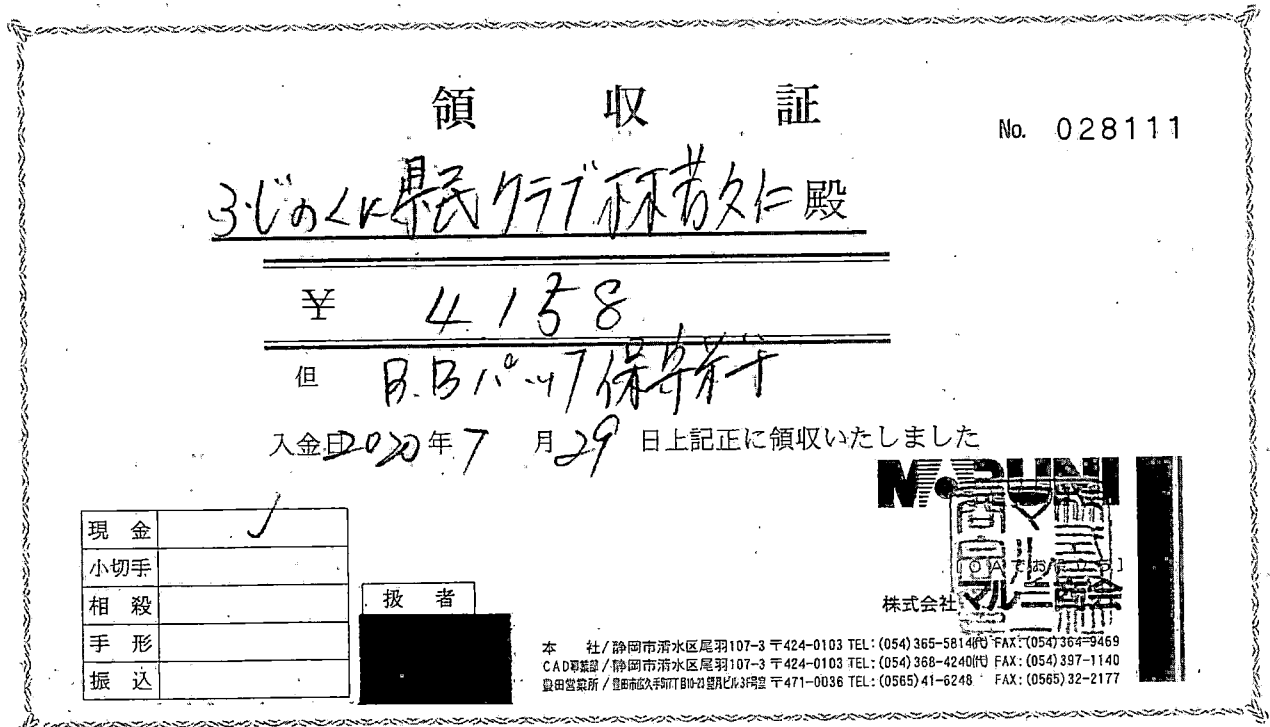 領 収 証
No. 028111
ふじのくに県民クラブ 林芳久仁 殿
¥ 4,158
但 B.Bパック保守料
入金日2020年7月29日上記正に領収いたしました
MARUNI
現 金 ✓
小切手
相 殺
手 形
振 込
扱 者
[OAでお役立ち]
株式会社 マルニ商会
本 社/静岡市清水区尾羽107-3 〒424-0103 TEL:(054)365-5814㈹ FAX:(054)364-9469
CAD事業部/静岡市清水区尾羽107-3 〒424-0103 TEL:(054)368-4240㈹ FAX:(054)397-1140
豊田営業所/豊田市広久手町7丁目10-23 望月ビル3F号室 〒471-0036 TEL:(0565)41-6248 FAX:(0565)32-2177